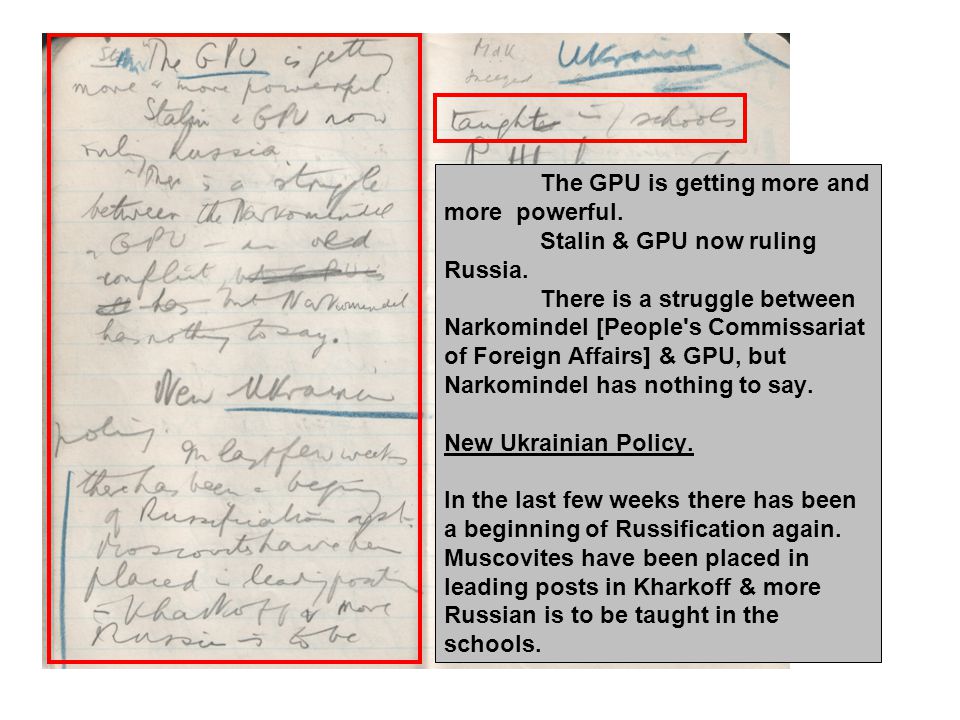 The GPU is getting
more & more powerful.
Stalin & GPU now
ruling Russia.
There is a struggle
between the Narkomindel
& GPU – an old
conflict,
has but Narkomindel
has nothing to say.
New Ukrainian
policy.
In last few weeks
there has been a begining
of Russification again.
Moscovites have been
placed in leading position
in Kharkoff & more
Russian is to be
Ukraine
taught in schools
The GPU is getting more and
more powerful.
Stalin & GPU now ruling
Russia.
There is a struggle between
Narkomindel [People's Commissariat
of Foreign Affairs] & GPU, but
Narkomindel has nothing to say.
New Ukrainian Policy.
In the last few weeks there has been
a beginning of Russification again.
Muscovites have been placed in
leading posts in Kharkoff & more
Russian is to be taught in the
schools.